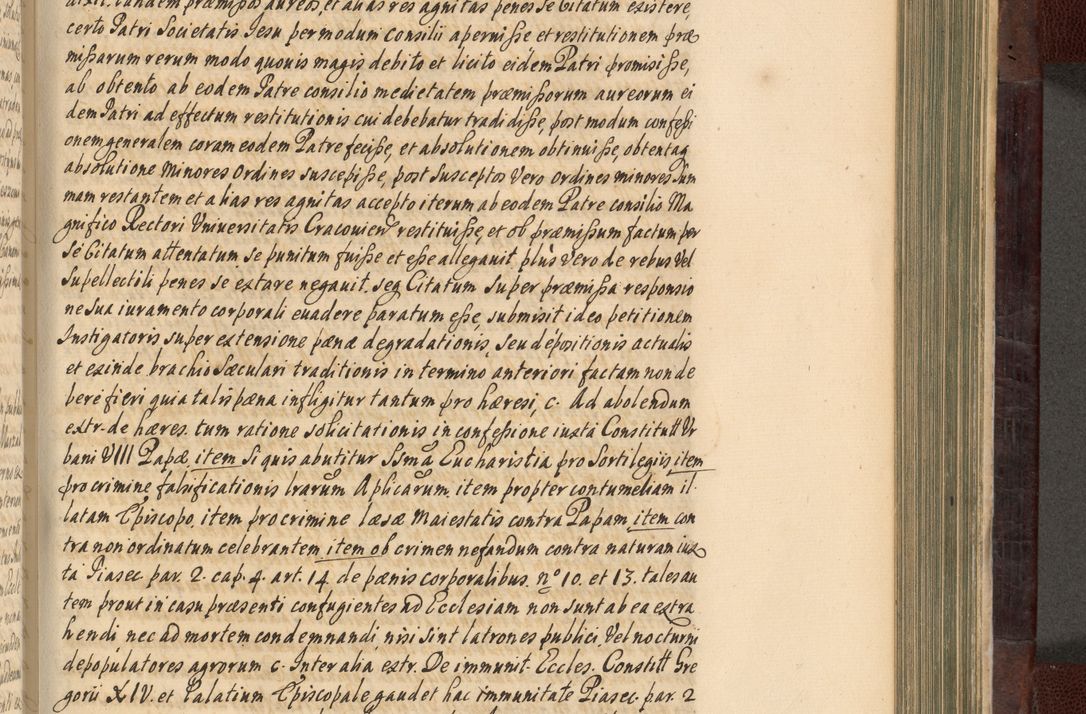 dixit. Eundem præmissos aureos, et alias res agnitas penes se Citatum existere,
certo Patri Societatis Jesu per modum consilii aperuisse et restitutionem præ
missarum rerum modo quovis magis debito et licito eidem Patri promisisse,
ab obtento ab eodem Patre consilio medietatem præmissorum aureorum ei
dem Patri ad effectum restitutionis cui debebatur tradidisse, post modum confessi
onem generalem coram eodem Patre fecisse, et absolutionem obtinuisse, obtentaq
absolutione Minores Ordines suscepisse, post susceptos Vero ordines minores sum
mam restantem et alias res agnitas accepto iterum ab eodem Patre consilio Ma
gnifico Rectori Universitatis Cracovien restituisse, et ob præmissum factum per
se Citatum attentatum se punitum fuisse et esse allegavit plus vero de rebus Vel
supellectili penes se extare negavit. Seq Citatum super præmissa responsio
ne sua iuramento corporali evadere paratum esse, submisit ideo petitionem
Instigatoris super extensione pænæ degradationis, seu depositionis actualis
et exinde brachio Sæculari traditionis in termino anteriori factam non de
bere fieri quia talis pæna infligitur tantum pro hæresi, c. Ad abolendum
extr. de hæres. tum ratione solicitationis in confessione iuxta Constitutt Ur
bani VIII Papæ item Si quis abutitur SSma Eucharistia pro Sortilegiis item
pro crimine falsificationis lrarum Aplicarum, item propter contumeliam il
latam Episcopo, item pro crimine læsæ Maiestatis contra Papam, item con
tra non ordinatum celebrantem item ob crimen nefandum contra naturam iux
ta Piasec par. 2. cap. 4. art. 14. de pænis corporalibus. nº 10. et 13. tales au
tem prout in casu præsenti confugientes ad Ecclesiam non sunt ab ea extra
hendi nec ad mortem condemnandi, nisi sint latrones publici, Vel nocturni
depopulatores agrorum c. Inter alia extr. De immunit. Eccles. Constitt Gre
gorii XIV. et Palatium Episcopale gaudet hac immunitate Piasec. par. 2